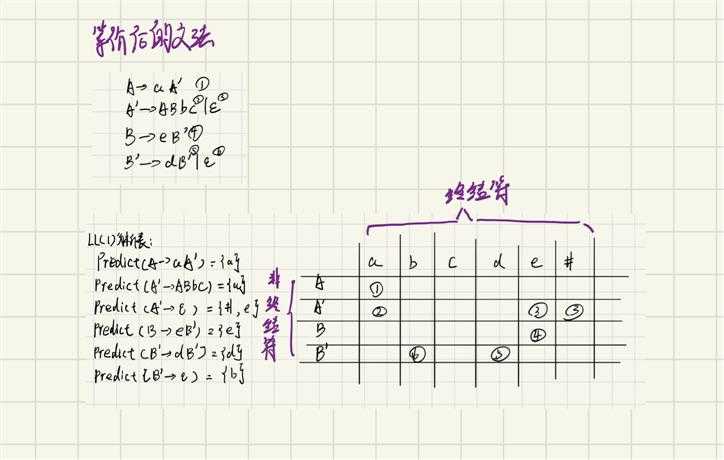 等价后的文法
A→aA' ①
A'→ABbC②|ε③
B→eB'④
B'→dB'⑤|ε⑥
终结符
LL(1)分析表:
Predict(A→aA')={a}
Predict(A'→ABbC)={a}
Predict(A'→ε)={#,e}
Predict(B→eB')={e}
Predict(B'→dB')={d}
Predict(B'→ε)={b}
非终结符
a b c d e #
A ①
A' ② ③ ③
B ④
B' ⑥ ⑤